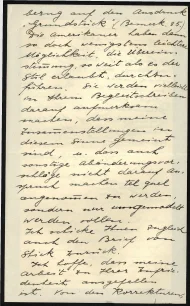 bezug auf den Ausdruck
"Grundstück" (Bemerk 85).
Die Amerikaner haben dann
so doch wenigstens leichter
Möglichkeit, die Überein-
stimmung, so weit als es der
Stil erlaubt, durchzu-
führen. Sie werden vielleicht
in Ihrem Begleitschreiben
darauf aufmerksam
machen, dass meine
Zusammenstellungen in
diesem Sinne gemeint
sind, u. dass auch
sonstige Abänderungsvor-
schläge nicht darauf An-
spruch machen tel quel
angenommen zu werden
sondern nur umgemodelt
werden sollen.
Ich schicke Ihnen zugleich
auch den Brief von
Stück zurück.
Ich hoffe, dass meine
Arbeit zu Ihrer Zufrie-
denheit ausgefallen
ist. Von den Korrekturen